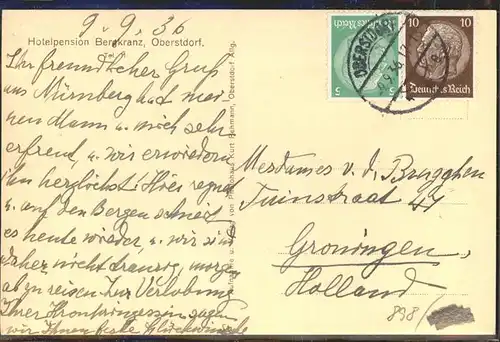 9.9.36
Hotelpension Bergkranz, Oberstdorf.
Ihr freundlicher Gruß
aus Nürnberg hat mei-
nen Mann u. mich sehr
erfreut, u. wir erwiedern
ihn herzlichst! Hier regnet
u. auf den Bergen schneit
es heute wieder, u. wir sind
daher nicht traurig, morgen
ab zu reisen. Zur Verlobung
Ihrer Kronprinzessin sagen
wir Ihnen beste Glückwünsche
von Photohaus Kurt Rehmann, Oberstdorf Allg.
Deutsches Reich
5
5
10
10
Deutsches Reich
OBERSTDORF
Mesdames v. d. Brugghen
Tuinstraat 47
Groningen,
Holland
898/